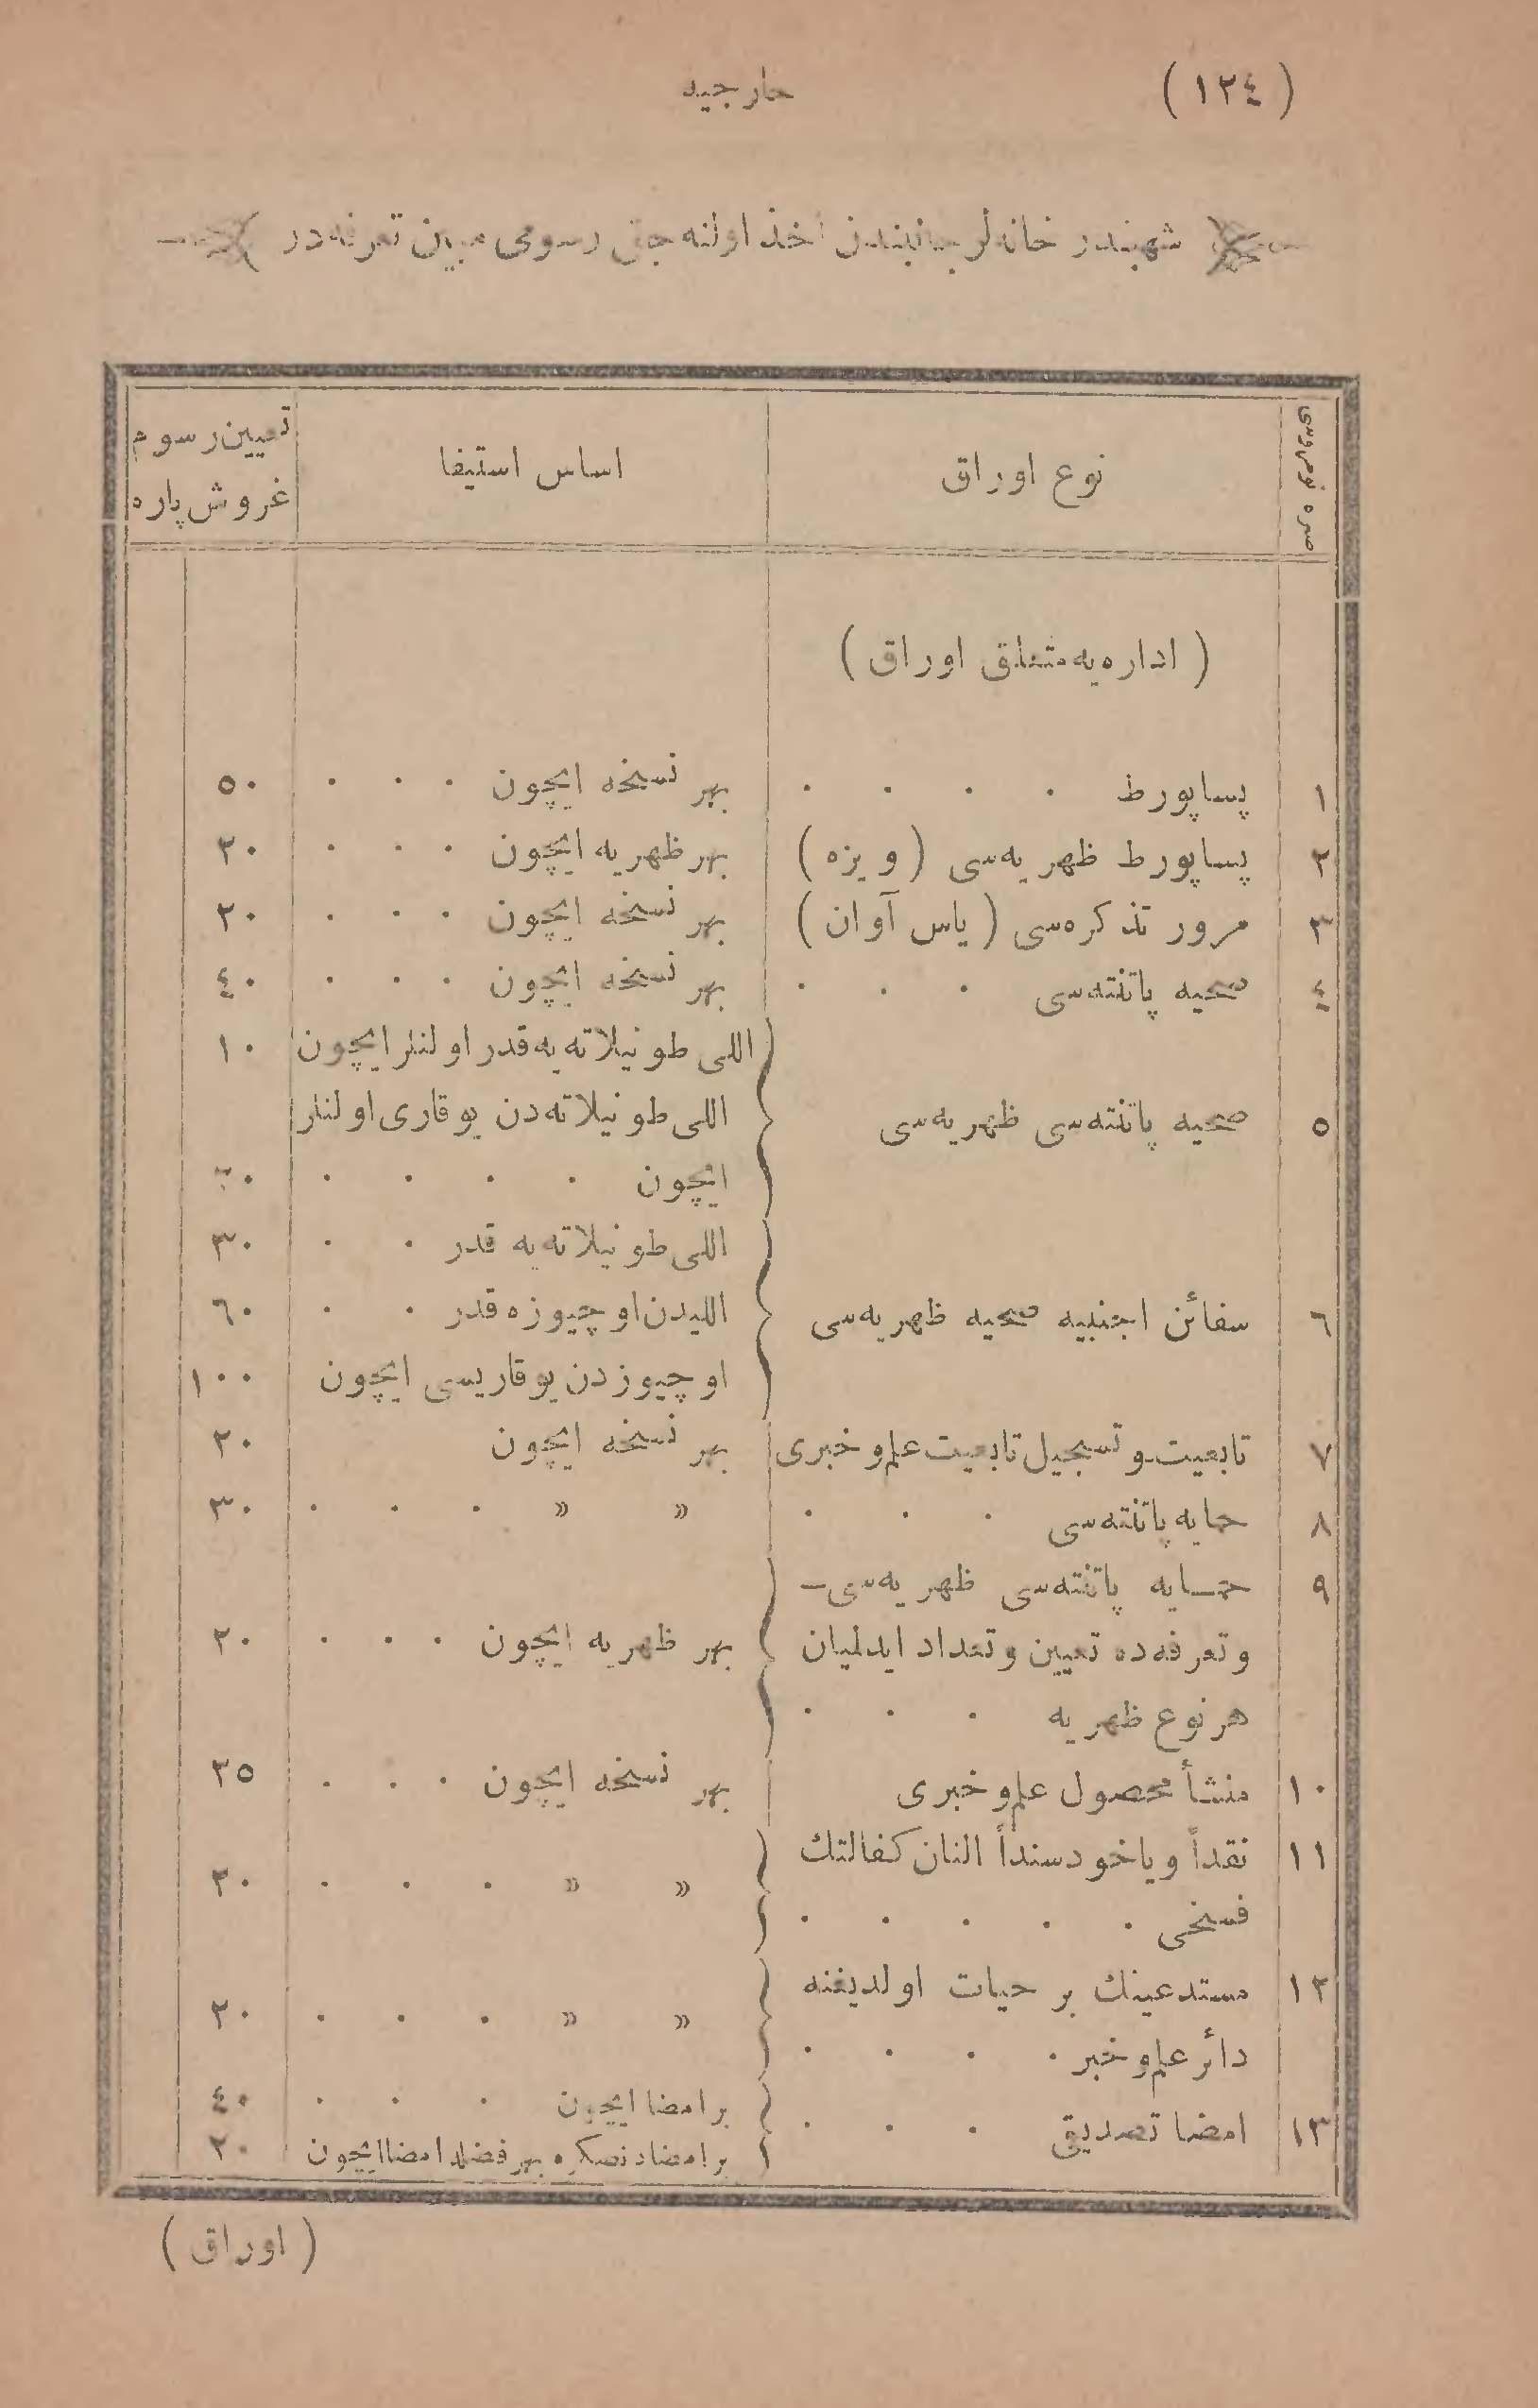 (١٢٤) خارجيه
شهبندر خانه‌لر جانبندن اخذ اولنه جق رسومی مبین تعرفه‌در
صره نومروسی | نوع اوراق | اساس استیفا | تعیین رسوم غروش پاره
( اداره‌یه متعلق اوراق )
١ | پساپورط . . . . | بهر نسخه ایچون . . . | ٥٠
٢ | پساپورط ظهریه‌سی ( ویزه ) | بهر ظهریه ایچون . . . | ٢٠
٣ | مرور تذکره‌سی ( یاس آوان ) | بهر نسخه ایچون . . . | ٢٠
٤ | صحیه پاتنته‌سی . . . | بهر نسخه ایچون . . . | ٤٠
٥ | صحیه پاتنته‌سی ظهریه‌سی | اللی طونیلاته‌یه قدر اولنلر ایچون | ١٠
اللی طونیلاته‌دن یوقاری اولنلر
ایچون . . . . | ٢٠
اللی طونیلاته‌یه قدر . . | ٣٠
٦ | سفائن اجنبیه صحیه ظهریه‌سی | اللیدن اوچیوزه قدر . . | ٦٠
اوچیوزدن یوقاریسی ایچون | ١٠٠
٧ | تابعیت و تسجیل تابعیت علم و خبری | بهر نسخه ایچون | ٢٠
٨ | حمایه پاتنته‌سی . . . | » » . . . . | ٣٠
٩ | حمـایه پاتنته‌سی ظهریه‌سی –
و تعرفه‌ده تعیین و تعداد ایدلمیان | بهر ظهریه ایچون . . . | ٢٠
هر نوع ظهریه . . .
١٠ | منشأ محصول علم و خبری | بهر نسخه ایچون . . . | ٢٥
١١ | نقداً و یاخود سنداً النان کفالتك
فسخی . . . . . | » » . . . | ٢٠
١٢ | مستدعینك بر حیات اولدیغنه
دائر علم و خبر . . . . | » » . . . | ٢٠
١٣ | امضا تصدیق . . . | بر امضا ایچون . . . | ٤٠
بر امضادنصکره بهر فضله امضا ایچون | ٢٠
( اوراق )